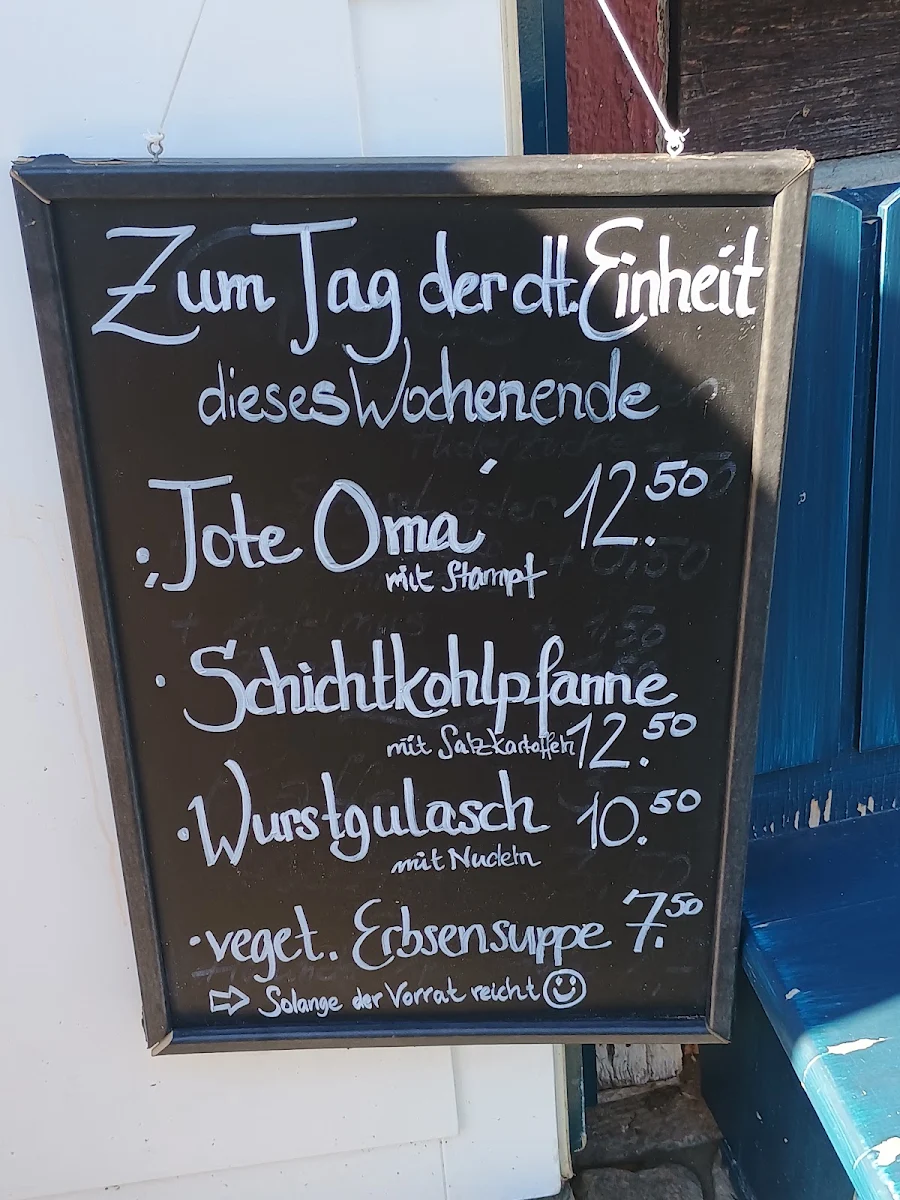 Zum Tag der dt. Einheit
dieses Wochenende
• Tote Oma 12.50
mit Stampf
• Schichtkohlpfanne
mit Salzkartoffeln 12.50
• Wurstgulasch 10.50
mit Nudeln
• veget. Erbsensuppe 7.50
⇨ Solange der Vorrat reicht ☺